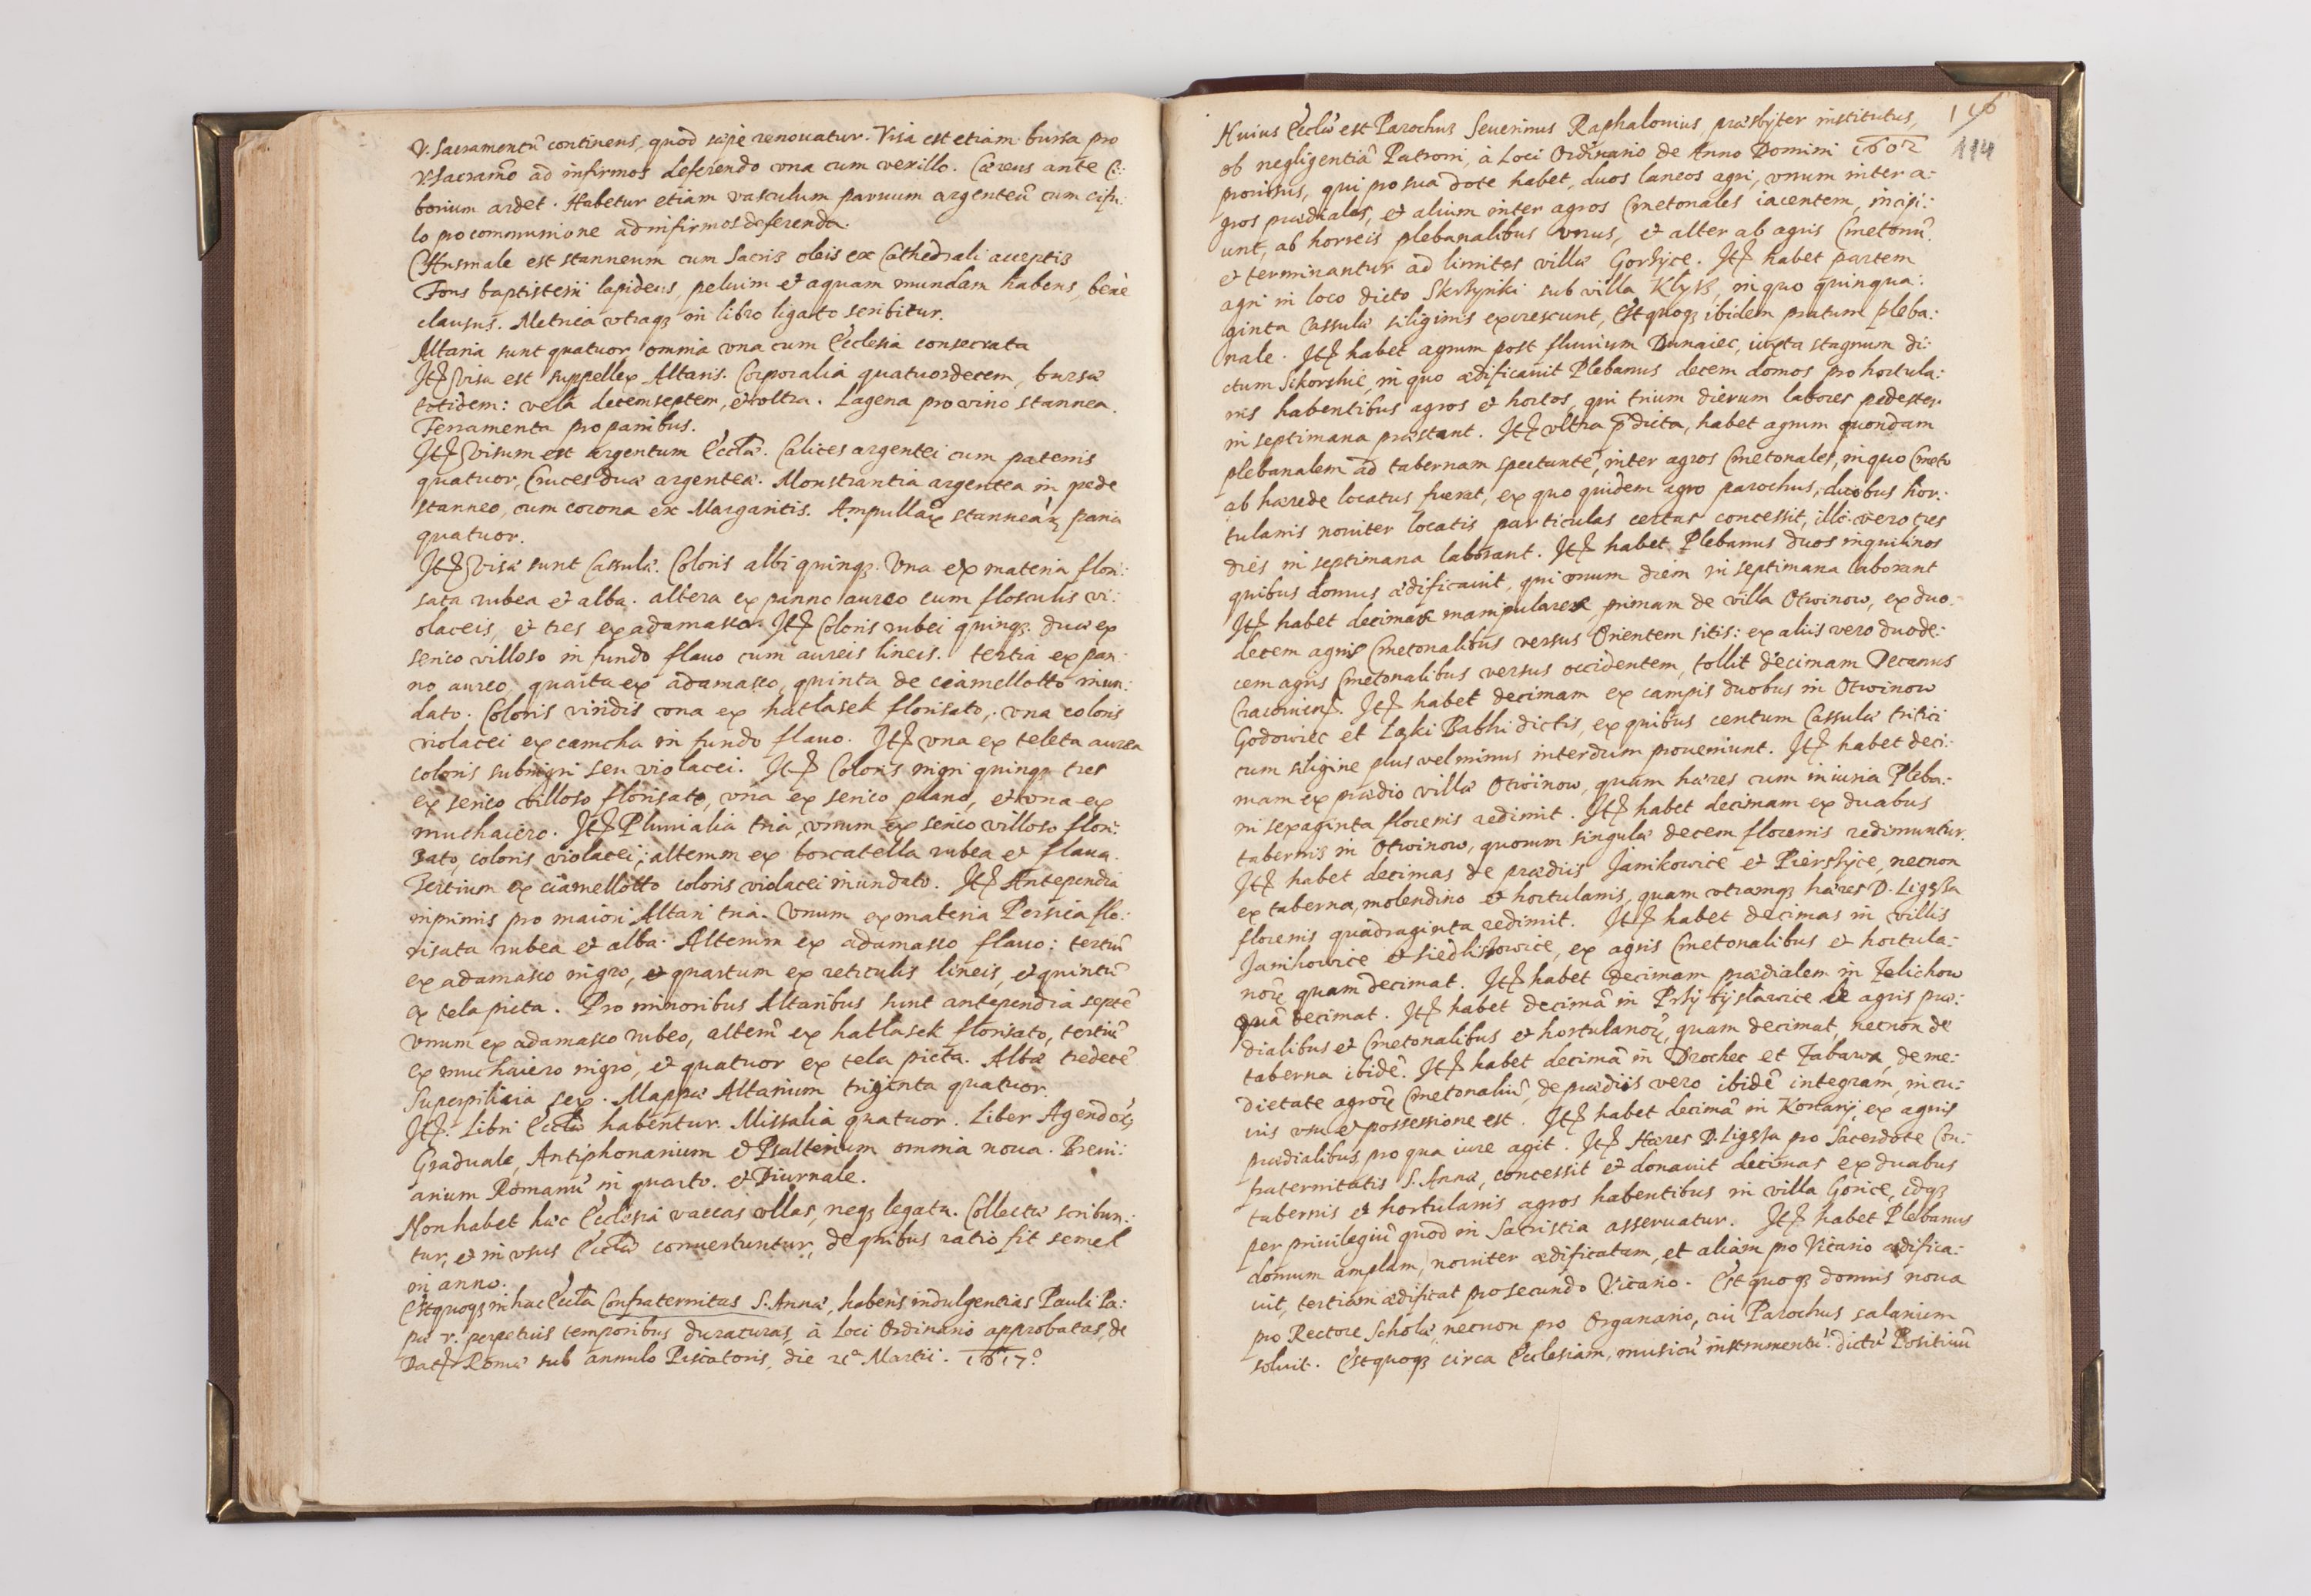 V. Sacramentũ continens, quod sæpe renouatur. Visa est etiam bursa pro
V. Sacramẽ. ad infirmos deferendo vna cum vexillo. Cæreus ante Ci:
borium ardet. Habetur etiam vasculum paruum argenteũ cum cistu:
lo pro communione ad infirmos deferenda.
Chrismale est stanneum cum Sacris oleis ex Cathedrali acceptis
Fons baptisterii lapideus, peluim et aquam mundam habens, bene
clausus. Metrica vtraqꝫ in libro ligato scribitur.
Altaria sunt quatuor omnia vna cum Ecclesia consecrata
Itẽ Visa est suppellex Altaris. Corporalia quatuordecem, bursæ
totidem: vela decemseptem, et vltra. Lagena pro vino stannea.
Ferramenta pro panibus.
Itẽ Visum est argentum Eccłæ. Calices argentei cum patenis
quatuor, Cruces duæ argenteæ. Monstrantia argentea in pede
stanneo, cum corona ex Margaritis. Ampullarꝫ stannearꝫ paria
quatuor.
Itẽ Visæ sunt Cassulæ. Coloris albi quinqꝫ. Vna ex materia flori:
sata rubea et alba. altera ex panno aureo cum flosculis vi:
olaceis, et tres ex adamasco. Itẽ Coloris rubei quinqꝫ. duæ ex
serico villoso in fundo flauo cum aureis lineis. tertia ex pan:
no aureo, quarta ex adamasco, quinta de ciamellotto inun:
dato. Coloris viridis vna ex hatlasek florisato, vna coloris
violacei ex camcha in fundo flauo. Itẽ vna ex teleta aurea
coloris subnigri seu violacei. Itẽ Coloris nigri quinqꝫ tres
ex serico villoso florisato, vna ex serico plano, et vna ex
muchaiero. Itẽ Pluuialia tria, vnum ex serico villoso flori:
sato, coloris violacei; alterum ex borcatella rubea et flaua.
Tertium ex ciamellotto coloris violacei inundato. Itẽ Antependia
inprimis pro maiori Altari tria. Vnum ex materia Persica flo:
risata rubea et alba. Alterum ex adamasco flauo: tertiũ
ex adamasco nigro, et quartum ex reticulis lineis, et quintũ
ex tela picta. Pro minoribus Altaribus sunt antependia septẽ
vnum ex adamasco rubeo, alterũ ex hatlasek florisato, tertiũ
ex muchaiero nigro, et quatuor ex tela picta. Albæ tredecẽ
Superpilicia sex. Mappæ Altarium triginta quatuor.
Itẽ: Libri Eccłæ habentur. Missalia quatuor. Liber Agendorꝫ
Graduale, Antiphonarium et Psalterium omnia noua. Breui:
arium Romanũ in quarto. et Diurnale.
Non habet hæc Ecclesia vaccas vllas, neqꝫ legata. Collectæ scribun:
tur, et in vsus Eccłæ conuertuntur, de quibus ratio fit semel
in anno.
Est quoqꝫ in hac Eccła Confraternitas S. Annæ, habens indulgentias Pauli Pa:
pæ v. perpetuis temporibus duraturas, à Loci Ordinario approbatas, de
Datẽ Romæ sub annulo Piscatoris, die 21ª Martii. 1617º.
116
114
Huius Eccłæ est Parochus Seuerinus Raphalouius, præsbÿter institutus,
ob negligentiã Patroni, à Loci Ordinario de Anno Domini 1602
prouisus, qui pro sua dote habet, duos laneos agri, vnum inter a:
gros prædiales, et alium inter agros Cmetonales iacentem, incipi:
unt, ab horreis plebanalibus vnus, et alter ab agris Cmetonũ.
et terminantur ad limites villæ Gorżÿce. Itẽ habet partem
agri in loco dicto Skrzÿnki sub villa Klÿż, in quo quinqua:
ginta Cassulæ siliginis excrescunt, Est quoqꝫ ibidem pratum pleba:
nale. Itẽ habet agrum post fluuium Dunaiec, iuxta stagnum di:
ctum Sikorskie, in quo ædificauit Plebanus decem domos pro hortula:
nis habentibus agros et hortos, qui trium dierum labores pedester
in septimana præstant. Itẽ vltra p̃dicta, habet agrum quondam
plebanalem ad tabernam spectantẽ, inter agros Cmetonales, in quo Cmeto
ab hærede locatus fuerat, ex quo quidem agro parochus, duobus hor:
tulanis nouiter locatis particulas certas concessit, illi vero tres
dies in septimana laborant. Itẽ habet Plebanus duos inquilinos
quibus domus ædificauit, qui vnum diem in septimana laborant
Itẽ habet decimas manipulares primam de villa Otwinow, ex duo:
decem agris Cmetonalibus versus Orientem sitis: ex aliis vero duode:
cem agris Cmetonalibus versus occidentem, tollit decimam Decanus
Cracouien̄. Itẽ habet decimam ex campis duobus in Otwinow
Godowiec et Łąki Babki dictis, ex quibus centum Cassulæ tritici
cum siligine plus vel minus interdum proueniunt. Itẽ habet deci:
mam ex prædio villæ Otwinow, quam hæres cum iniuria Pleba:
ni sexaginta florenis redimit. Itẽ habet decimam ex duabus
tabernis in Otwinow, quorum singulæ decem florenis redimuntur.
Itẽ habet decimas de prædiis Janikowice et Pierszÿce, necnon
ex taberna, molendino et hortulanis, quam vtramqꝫ hæres D. Ligęza
florenis quadraginta redimit. Itẽ habet decimas in villis
Janikowice et Siedliszowice, ex agris Cmetonalibus et hortula:
norꝫ quam decimat. Itẽ habet decimam prædialem in Żelichow
quã decimat. Itẽ habet decimã in Przÿbÿsławice de agris præ:
dialibus et Cmetonalibus et hortulanorꝫ, quam decimat, necnon de
taberna ibidẽ. Itẽ habet decimã in Drochec et Żabawa, de me:
dietate agrorꝫ Cmetonaliũ, de prædiis vero ibidẽ integram, in cu:
ius vsu et possessione est. Itẽ habet decimã in Konarÿ, ex agris
prædialibus, pro qua iure agit. Itẽ Hæres D. Ligęza pro Sacerdote Con:
fraternitatis S. Annæ, concessit et donauit decimas ex duabus
tabernis et hortulanis agros habentibus in villa Gorice, idqꝫ
per priuilegiũ quod in Sacristia asseruatur. Itẽ habet Plebanus
domum amplam, nouiter ædificatam, et aliam pro Vicario ædifica:
uit, tertiam ædificat pro secundo Vicario. Est quoqꝫ domus noua
pro Rectore Scholæ, necnon pro Organario, cui Parochus salarium
soluit. Est quoqꝫ circa Ecclesiam, musicũ instrumentũ dictũ Positiuũ